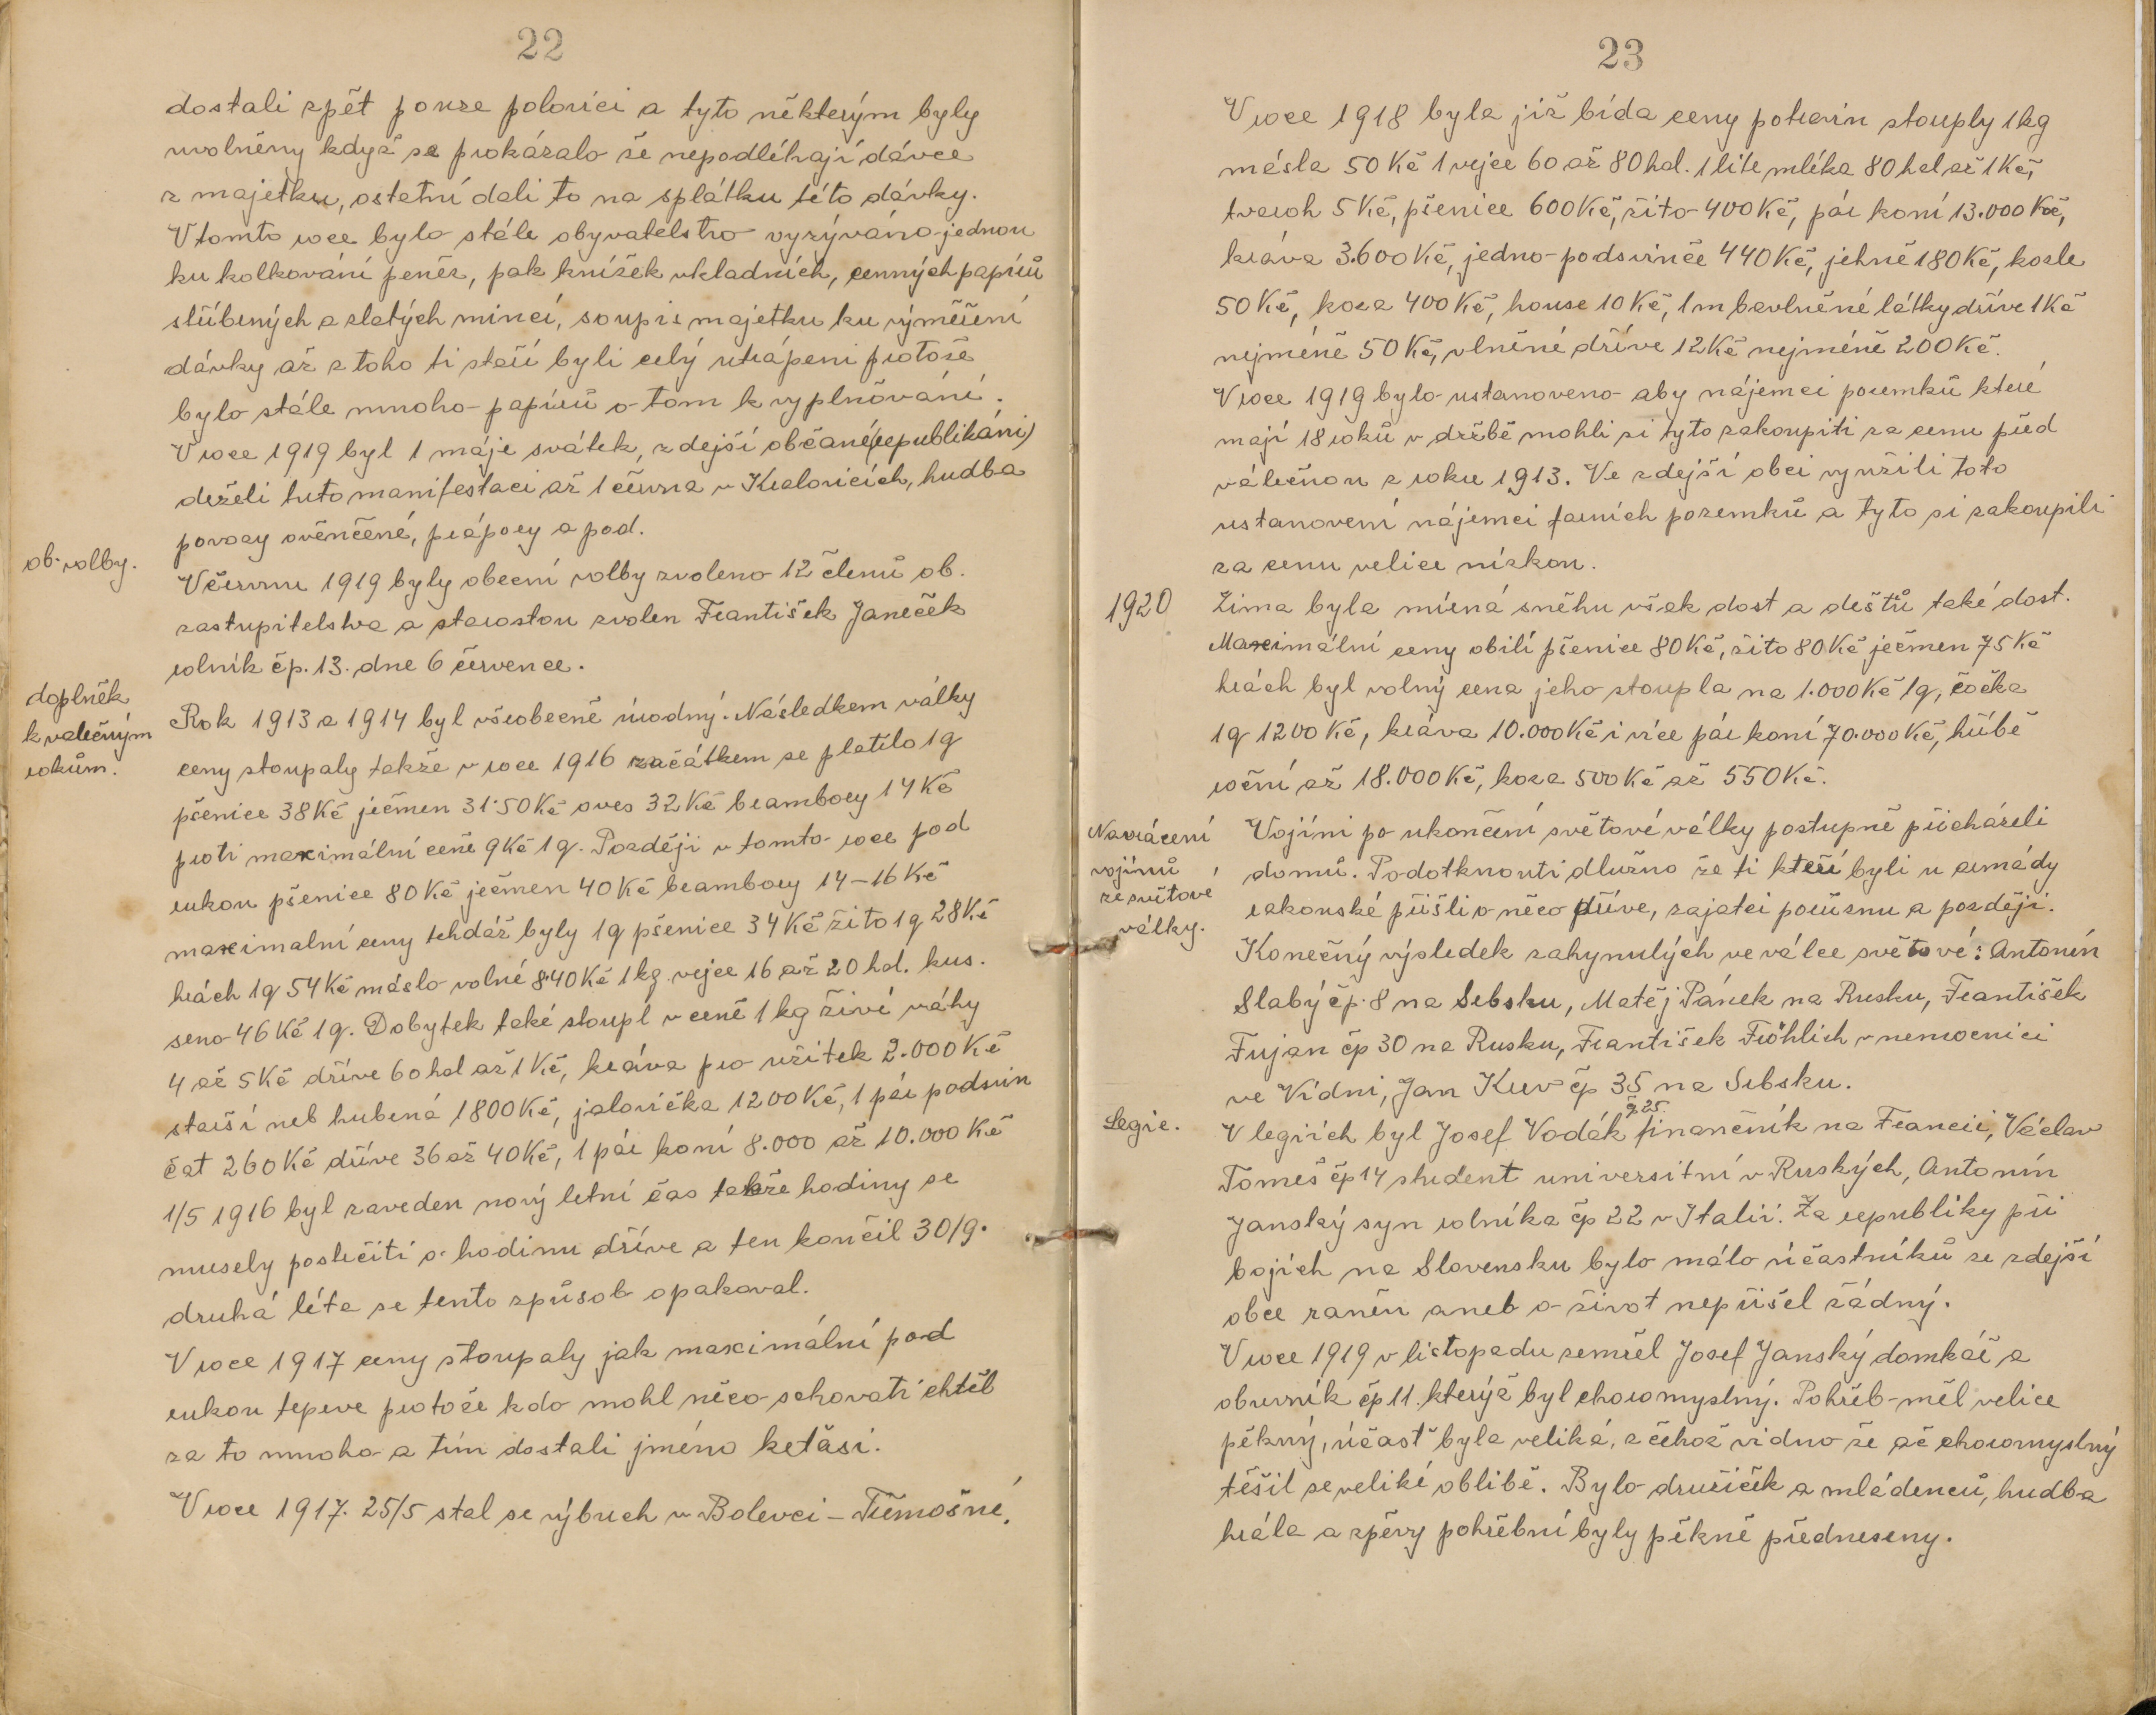 22
dostali zpět pouze polovici a tyto některým byly
uvolněny když se prokázalo že nepodléhají dávce
z majetku, ostatní dali to na splátku této dávky.
V tomto roce bylo stále obyvatelstvo vyzýváno jednou
ku kolkování peněz, pak knížek vkladních, cenných papírů
stříbrných a zlatých mincí, soupis majetku ku výměření
dávky až z toho ti staří byli celý utrápeni protože
bylo stále mnoho papírů o tom k vyplňování.
V roce 1919 byl 1 máje svátek, zdejší občané (republikáni)
drželi tuto manifestaci až 1 června v Kralovicích, hudba
povozy ověnčené, prápory a pod.
ob. volby.
V červnu 1919 byly obecní volby zvoleno 12 členů ob.
zastupitelstva a starostou zvolen František Janeček
rolník čp. 13. dne 6 července.
doplněk
k valečným
rokům.
Rok 1913 a 1914 byl všeobecně úrodný. Následkem války
ceny stoupaly takže v roce 1916 začátkem se platilo 1q
pšenice 38 Kč ječmen 31·50 Kč oves 32 Kč brambory 14 Kč
proti maximální ceně 9 Kč 1q. Později v tomto roce pod
rukou pšenice 80 Kč ječmen 40 Kč brambory 14–16 Kč
maximalní ceny tehdáž byly 1q pšenice 34 Kč žito 1q 28 Kč
hrách 1q 54 Kč máslo volné 8·40 Kč 1 kg. vejce 16 až 20 hal. kus.
seno 46 Kč 1q. Dobytek také stoupl v ceně 1 kg živé váhy
4 až 5 Kč dříve 60 hal až 1 Kč, kráva pro užitek 2.000 Kč
starší neb hubená 1800 Kč, jalovička 1200 Kč, 1 pár podsvin
čat 260 Kč dříve 36 až 40 Kč, 1 pár koní 8.000 až 10.000 Kč
1/5 1916 byl zaveden nový letní čas takže hodiny se
musely postrčiti o hodinu dříve a ten končil 30/9.
druhá léta se tento způsob opakoval.
V roce 1917 ceny stoupaly jak maximální pod
rukou teprve protože kdo mohl něco schovati chtěl
za to mnoho a tím dostali jméno keťasi.
V roce 1917. 25/5 stal se výbuch v Bolevci – Třemošné.
23
V roce 1918 byla již bída ceny potravin stouply 1 kg
másla 50 Kč 1 vejce 60 až 80 hal. 1 litr mléka 80 hal až 1 Kč,
tvaroh 5 Kč, pšenice 600 Kč, žito 400 Kč, pár koní 13.000 Kč,
kráva 3.600 Kč, jedno podsvinče 440 Kč, jehně 180 Kč, kozle
50 Kč, koza 400 Kč, house 10 Kč, 1 m bavlněné látky dříve 1 Kč
nejméně 50 Kč, vlněné dříve 12 Kč nejméně 200 Kč.
V roce 1919 bylo ustanoveno aby nájemci pozemků které
mají 18 roků v držbě mohli si tyto zakoupiti za cenu před
válečnou z roku 1913. Ve zdejší obci využili toto
ustanovení nájemci farních pozemků a tyto si zakoupili
za cenu velice nízkou.
1920
Zima byla mírná sněhu však dost a deštů také dost.
Maximální ceny obilí pšenice 80 Kč, žito 80 Kč ječmen 75 Kč
hrách byl volný cena jeho stoupla na 1.000 Kč 1q, čočka
1q 1200 Kč, kráva 10.000 Kč i více pár koní 70.000 Kč, hříbě
roční až 18.000 Kč, koza 500 Kč až 550 Kč.
Navrácení
vojínů
ze světové
války.
Vojíni po ukončení světové války postupně přicházeli
domů. Podotknouti dlužno že ti kteří byli u armády
rakouské přišli o něco dříve, zajatci porůznu a později.
Konečný výsledek zahynulých ve válce světové: Antonín
Slabý čp. 8 na Srbsku, Matěj Pánek na Rusku, František
Fujan čp 30 na Rusku, František Fröhlich v nemocnici
ve Vídni, Jan Kurv čp 35 na Srbsku.
Legie.
čp. 25.
V legiích byl Josef Vodák finančník na Francii, Václav
Tomeš čp 14 student universitní v Ruských, Antonín
Janský syn rolníka čp 22 v Italii. Za republiky při
bojích na Slovensku bylo málo účastníků ze zdejší
obce raněn aneb o život nepřišel žádný.
V roce 1919 v listopadu zemřel Josef Janský domkář a
obuvník čp 11. kterýž byl choromyslný. Pohřeb měl velice
pěkný, účasť byla veliká, z čehož vidno že ač choromyslný
těšil se veliké oblibě. Bylo družiček a mládenců, hudba
hrála a zpěvy pohřební byly pěkně předneseny.